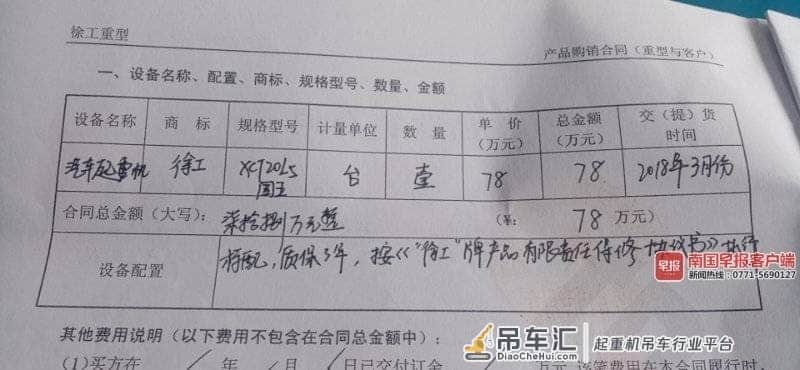 徐工重型
产品购销合同（重型与客户）
一、设备名称、配置、商标、规格型号、数量、金额
设备名称 商标 规格型号 计量单位 数量 单价（万元） 总金额（万元） 交（提）货时间
汽车起重机 徐工 XCT20L5 国五 台 壹 78 78 2018年3月份
合同总金额（大写）：柒拾捌万元整 （¥： 78 万元）
设备配置 标配，质保3年，按《“徐工”牌产品有限责任保修协议书》执行
早报 南国早报客户端
新闻热线：0771-5690127
其他费用说明（以下费用不包含在合同总金额中）：
(1)买方在 年 月 日已交付订金 万元，该笔费用在本合同履行时，
吊车汇 起重机吊车行业平台
DiaoCheHui.com